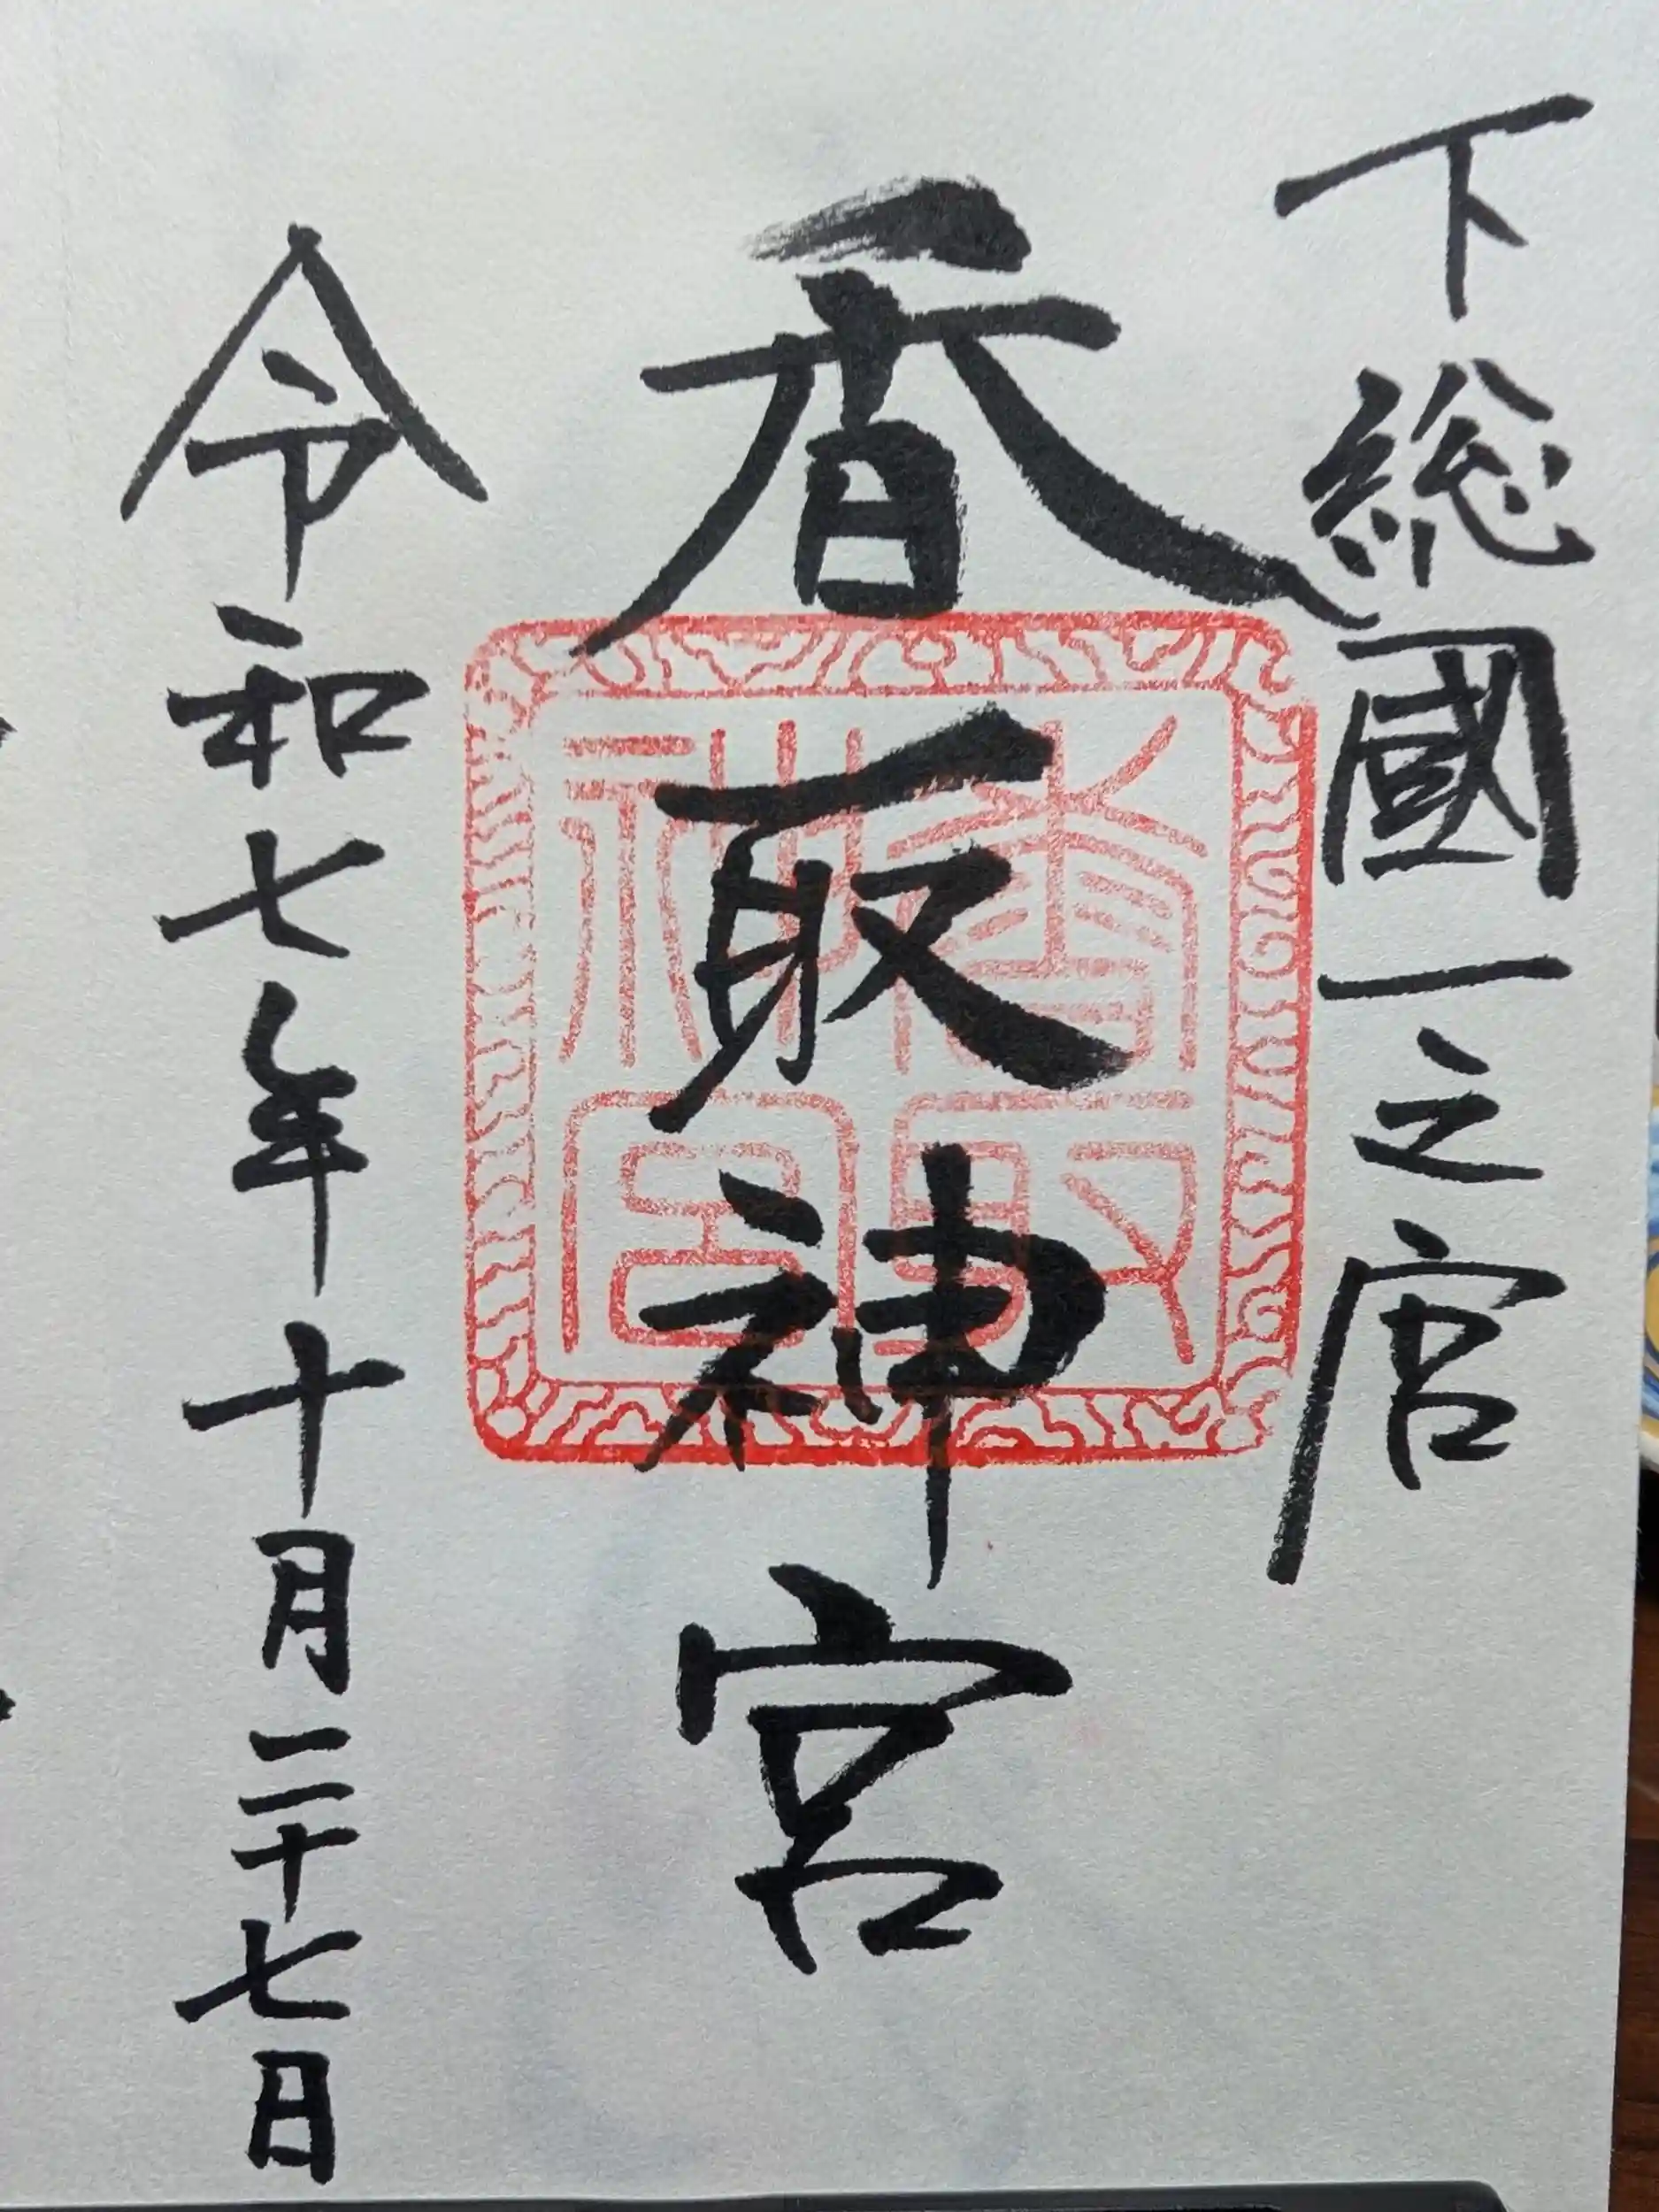 下総國一之宮
香取神宮
香取神宮
令和七年十月二十七日